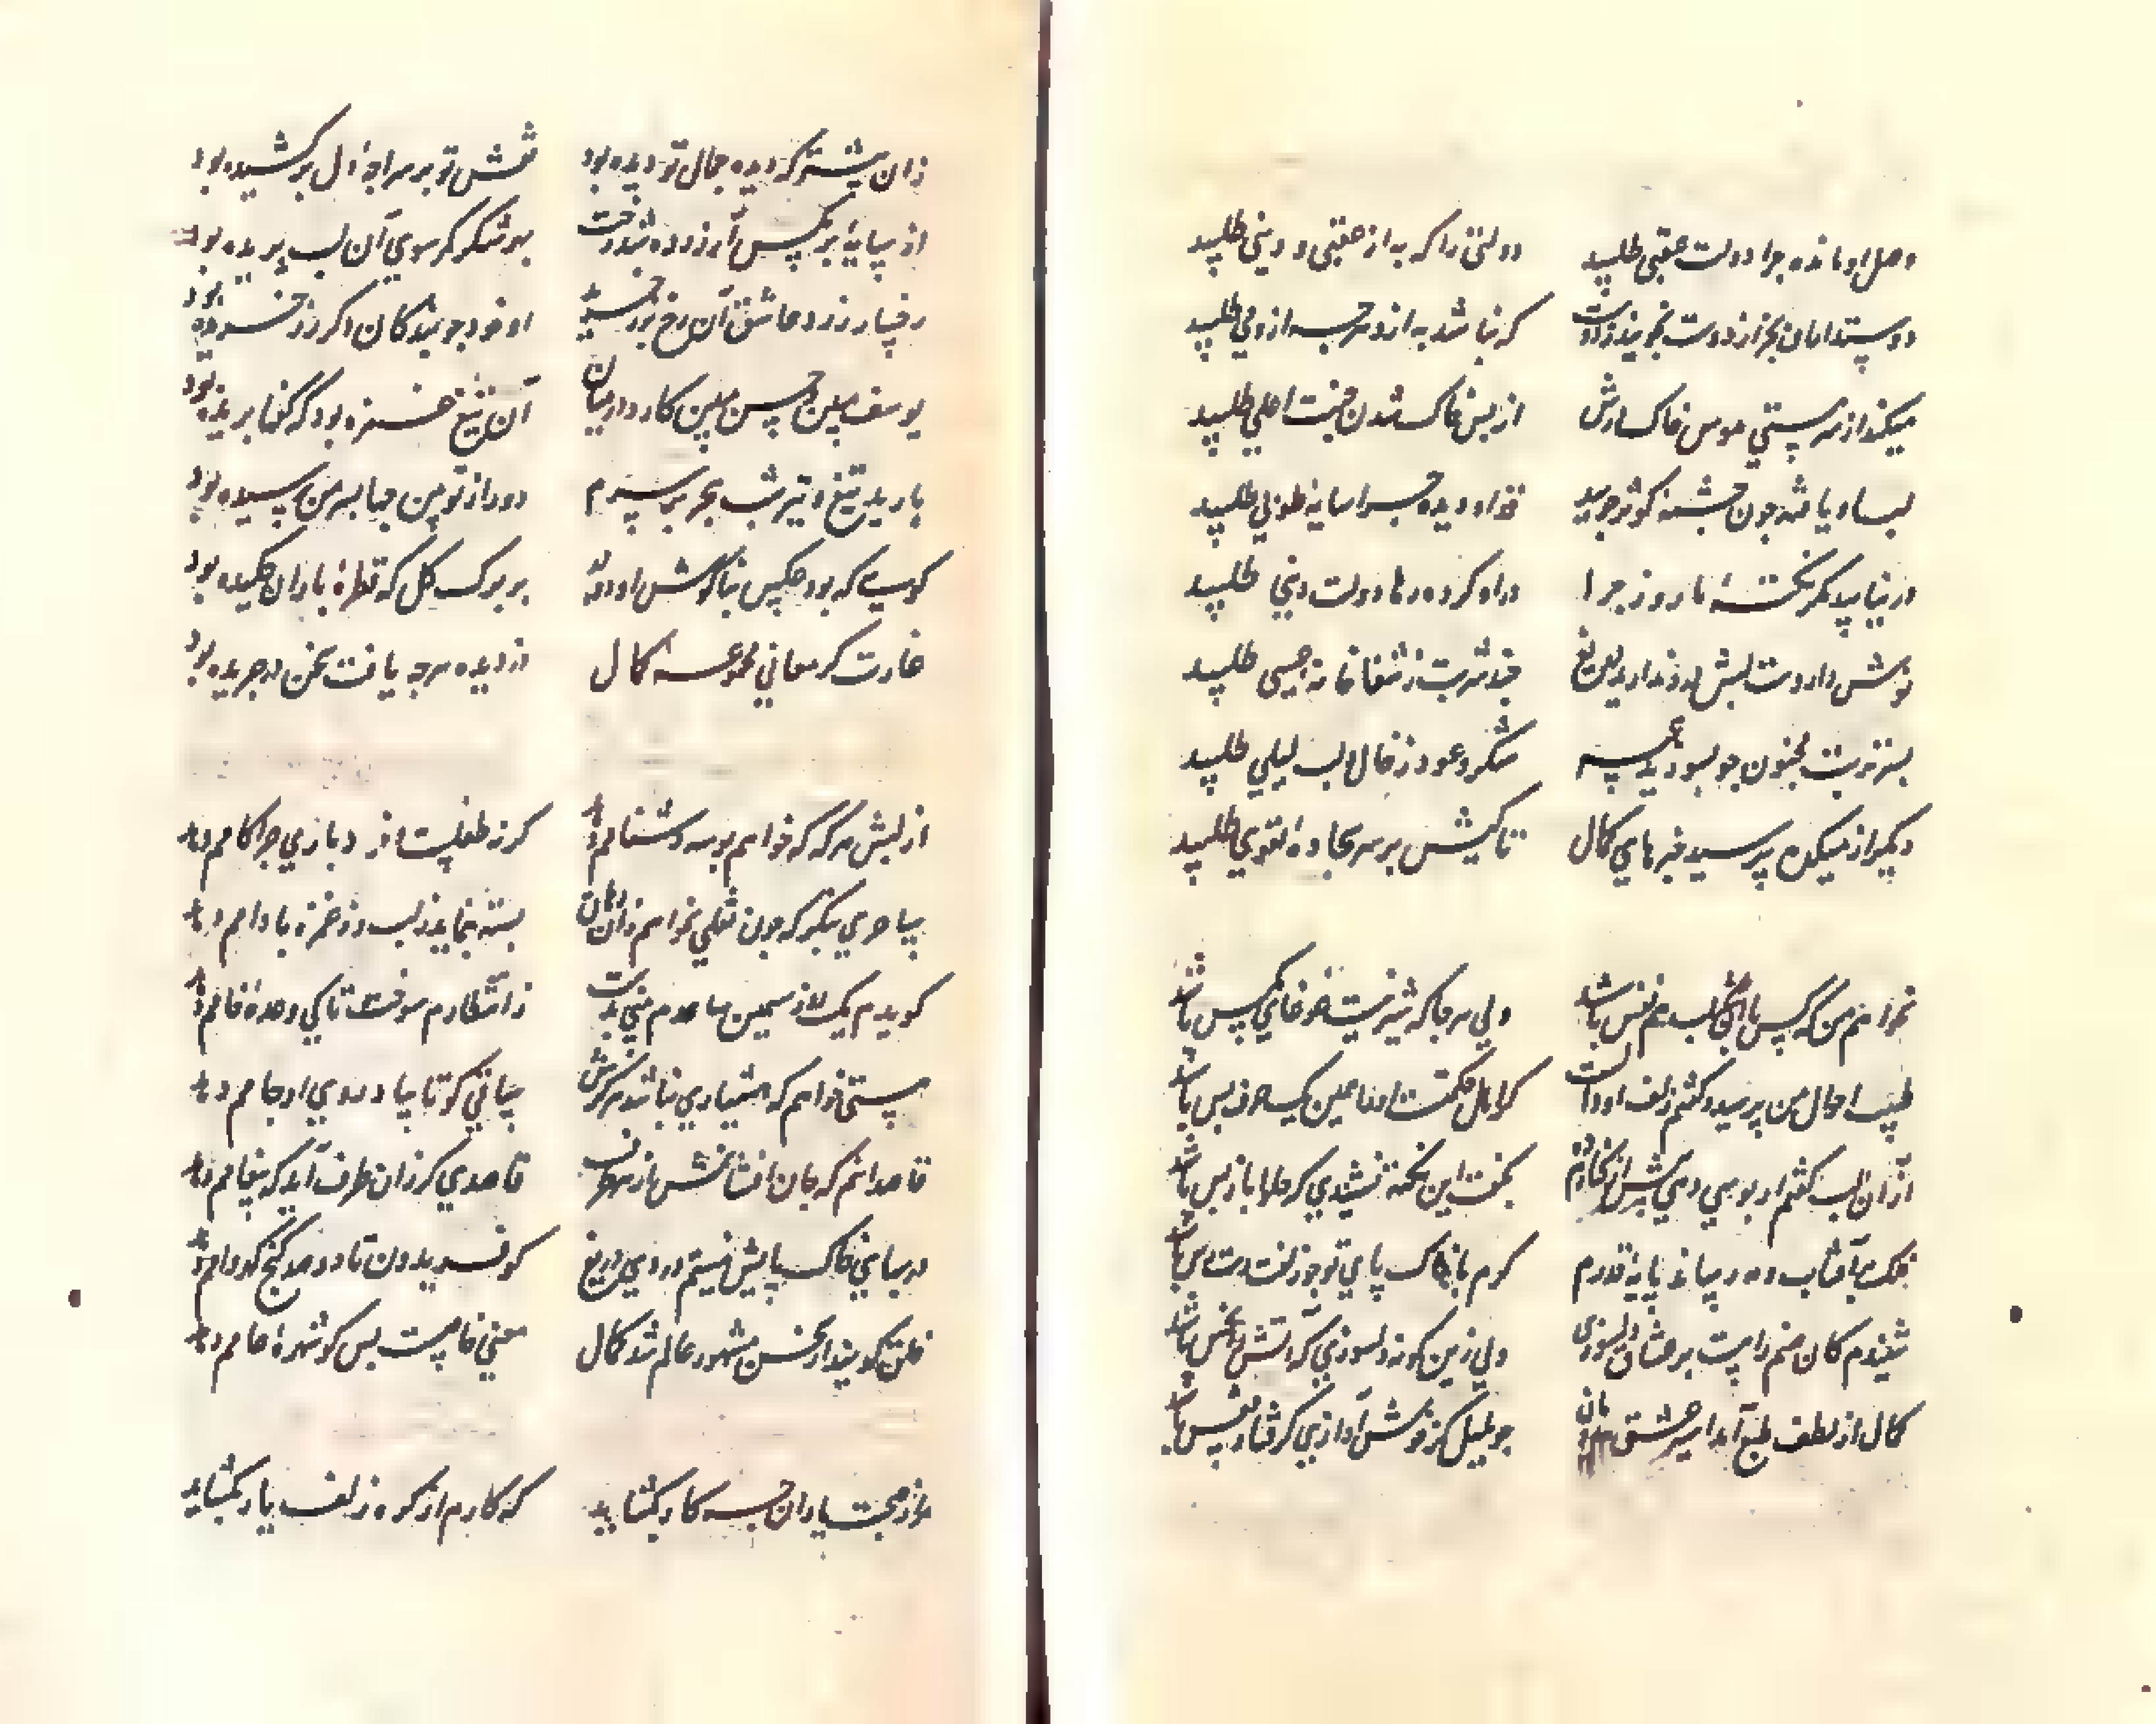 وصل او مانده چرا دولت عقبی طلبید دولتی را که به از عقبی و دینی طلبید
دوستداران بجز از دوست نجویند ز دوست که نباشد به از و هرچه از و می طلبید
میکند از سر پستی هوس خاک درش از پس خاک شدن جنت اعلی طلبید
لب او یافته چون چشمه کوثر جویید قد او دیده چرا سایه طوبی طلبید
در نیابید مگر نکته ما روز جزا در او کرده رها دولت دینی طلبید
نوش داروست لبش چند شربت ز شفاخانه عیسی طلبید
بر تربت مجنون چو بسوزید همه شکر و عود ز خال لب لیلی طلبید
دیگر از میکده پرسید خبرهای کمال تا کیش بر سر سجاده تقوی طلبید
نخواهم من که کس با آن لب هم نفس باشد ولی هرجا که شیرینیست غوغای مگس باشد
طبیب احوال من پرسید و گفتم زلف او که اهل حکمت اند همین یک حرف بس باشد
از آن لب گفتم ار بوسی دهی بگفت این نکته نشنیدی که حلوا باز پس باشد
فلک با آفتاب و مه رساند پایه قدرم گرم با خاک پای تو چو زلفت دست رس باشد
شنیدم کان صنم را هست بر عشاق دلسوزی ولی زین گونه دلسوزی که آتش را بخس باشد
کمال از لطف طبع آمد اسیر عشق چو بلبل کز خوش آوازی گرفتار قفس باشد
زان پیشتر که دیده جمال تو دیده بود نقش تو بر سراچه دل برکشیده بود
از سایه بر مگس آزرده شد رخت بر شکر که سوی آن لب پریده بود
رخسار زرد عاشق آن رخ بزر خرید او خود چو بندگان دگر زرخریده بود
یوسف مبین و حسن مبین کار در میان آن تیغ غمزه بود که کفها بریده بود
بارید تیغ و تیر شب هجر بر سرم دور از تو بین چها بسر من رسیده بود
گویی که بود عکس بناگوش او و در بر برگ گل که قطره باران چکیده بود
غارت گر معانی مجموعه کمال دزدیده هرچه یافت سخن در جریده بود
از لبش هر گه که خواهم بوسه دشنامم دهد گر نه طفلست از چه بازی چرا کامم دهد
ساحری بنگر که چون نقلی بخواهم زان دهان بسته بنماید ز لب وز غمزه بادامم دهد
گویدم یک روز سیمین ساعدم بینی بدست زانتظارم سوخت تا کی وعده خامم دهد
مستی خواهم که هشیاری نباشد هرگزش ساقی کو تا بیاد روی او جامم دهد
قاصدانم که جان افشانمش از هر طرف قاصدی کز زان طرف آید که پیغامم دهد
در بهای خاک پایش نیستم در وی دریغ کو فریدون تا دو صد گنج گهر وامم دهد
خلق گویند از سخن مشهور عالم شد کمال معنی خاصست بس کو شهره عامم دهد
مرا ز صحبت یاران چه کار بگشاید که کارم از گره زلف یار بگشاید